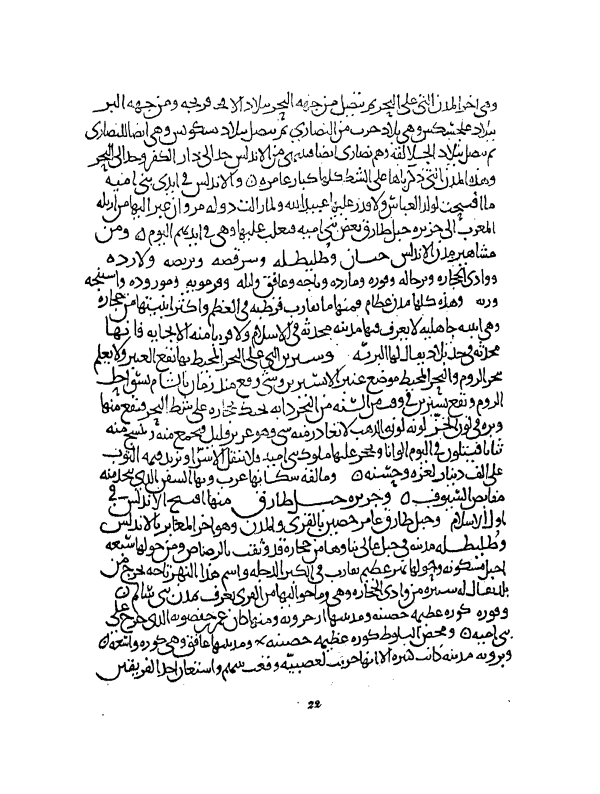 وفى اخر المدن التى على البحر ثم تتصل من جهه البحر ببلاد الافرنجه ومن جهه البر
ببلاد علجسكس وهى بلاد حرب من النصارى ثم تتصل ببلاد سكونس وهى ايضا للنصارى
ثم تتصل ببلاد الجلالقه وهم نصارى ايضا من الاندلس حد الى دار الكفر وحد الى البحر
وهذه المدن التى ذكرناها على الشط كلها كبار عامره والاندلس فى ايدى بنى اميه
العباس ولا قدر عليها عبيد الله ولما زالت دوله مروان عبر اليها من ازيله
المغرب الى جزيره جبل طارق بعض بنى اميه فتغلب عليها وهى فى ايديهم اليوم ومن
مشاهير مدن الاندلس جيان وطليطله وسرقصه ولارده
ووادى الحجاره وترجاله وقوريه ومارده وباجه وغافق ولبله وقرمونه ومورور واستجه
وريه وهذه كلها مدن عظام فمنها ما يقارب قرطبه فى العظم واكثر ابنيتها من حجاره
وهى ابنيه جاهليه لا يعرف فيها مدينه محدثه فى الاسلام بجانه فانها
محدثه فى حد بلاد يقال لها البيره وشنترين التى على البحر المحيط بها يقع العنبر ولا يعلم
ببحر الروم والبحر المحيط موضع عنبر الا شنترين وشى وقع منذ زمان بالشام بشواحط
الروم وتقع بشنترين فى وقت من السنه من البحر دابه تحتك بحجاره على شط البحر فيقع منها
وبره فى لون الخز لونه لون الذهب لا تغادر منه شى وهو عزيز قليل فيجمع منه وينسج منه
ثياب فيتلون فى اليوم الوانا ويحجر عليها ملوك بنى اميه ولا تنقل الا سرا وتزيد قيمه الثوب
على الف دينار لعزه وحسنه ومالقه سكانها عرب وبها السفن الذى يتخذ منه
مقابض السيوف وجزيره جبل طارق منها افتتح الاندلس فى
اول الاسلام وجبل طارق عامر خصيب بالقرى والمدن وهو اخر المعابر بالاندلس
وطليطله مدينه فى جبل عالى بناوها من حجاره قد وثقت بالرصاص ومن حولها سبعه
اجبل مسكونه وحولها نهر عظيم يقارب فى الكبر الدجله واسم هذا النهر تاجه يخرج من
بلد يقال له شنبره من وادى الحجاره وهى وما حواليها من القرى تعرف بمدن بنى سالم
وقوره كوره عظيمه حسنه ومدينتها ارجدونه ومنها كان عمر بن حفصون الذى خرج على
بنى اميه وفحص البلوط كوره عظيمه خصبه ومدينتها غافق وهى كوره واسعه
وبرونه مدينه كانت كبيره الا انها خربت لعصبيه وقعت بينهم واستعان احد الفريقين
22